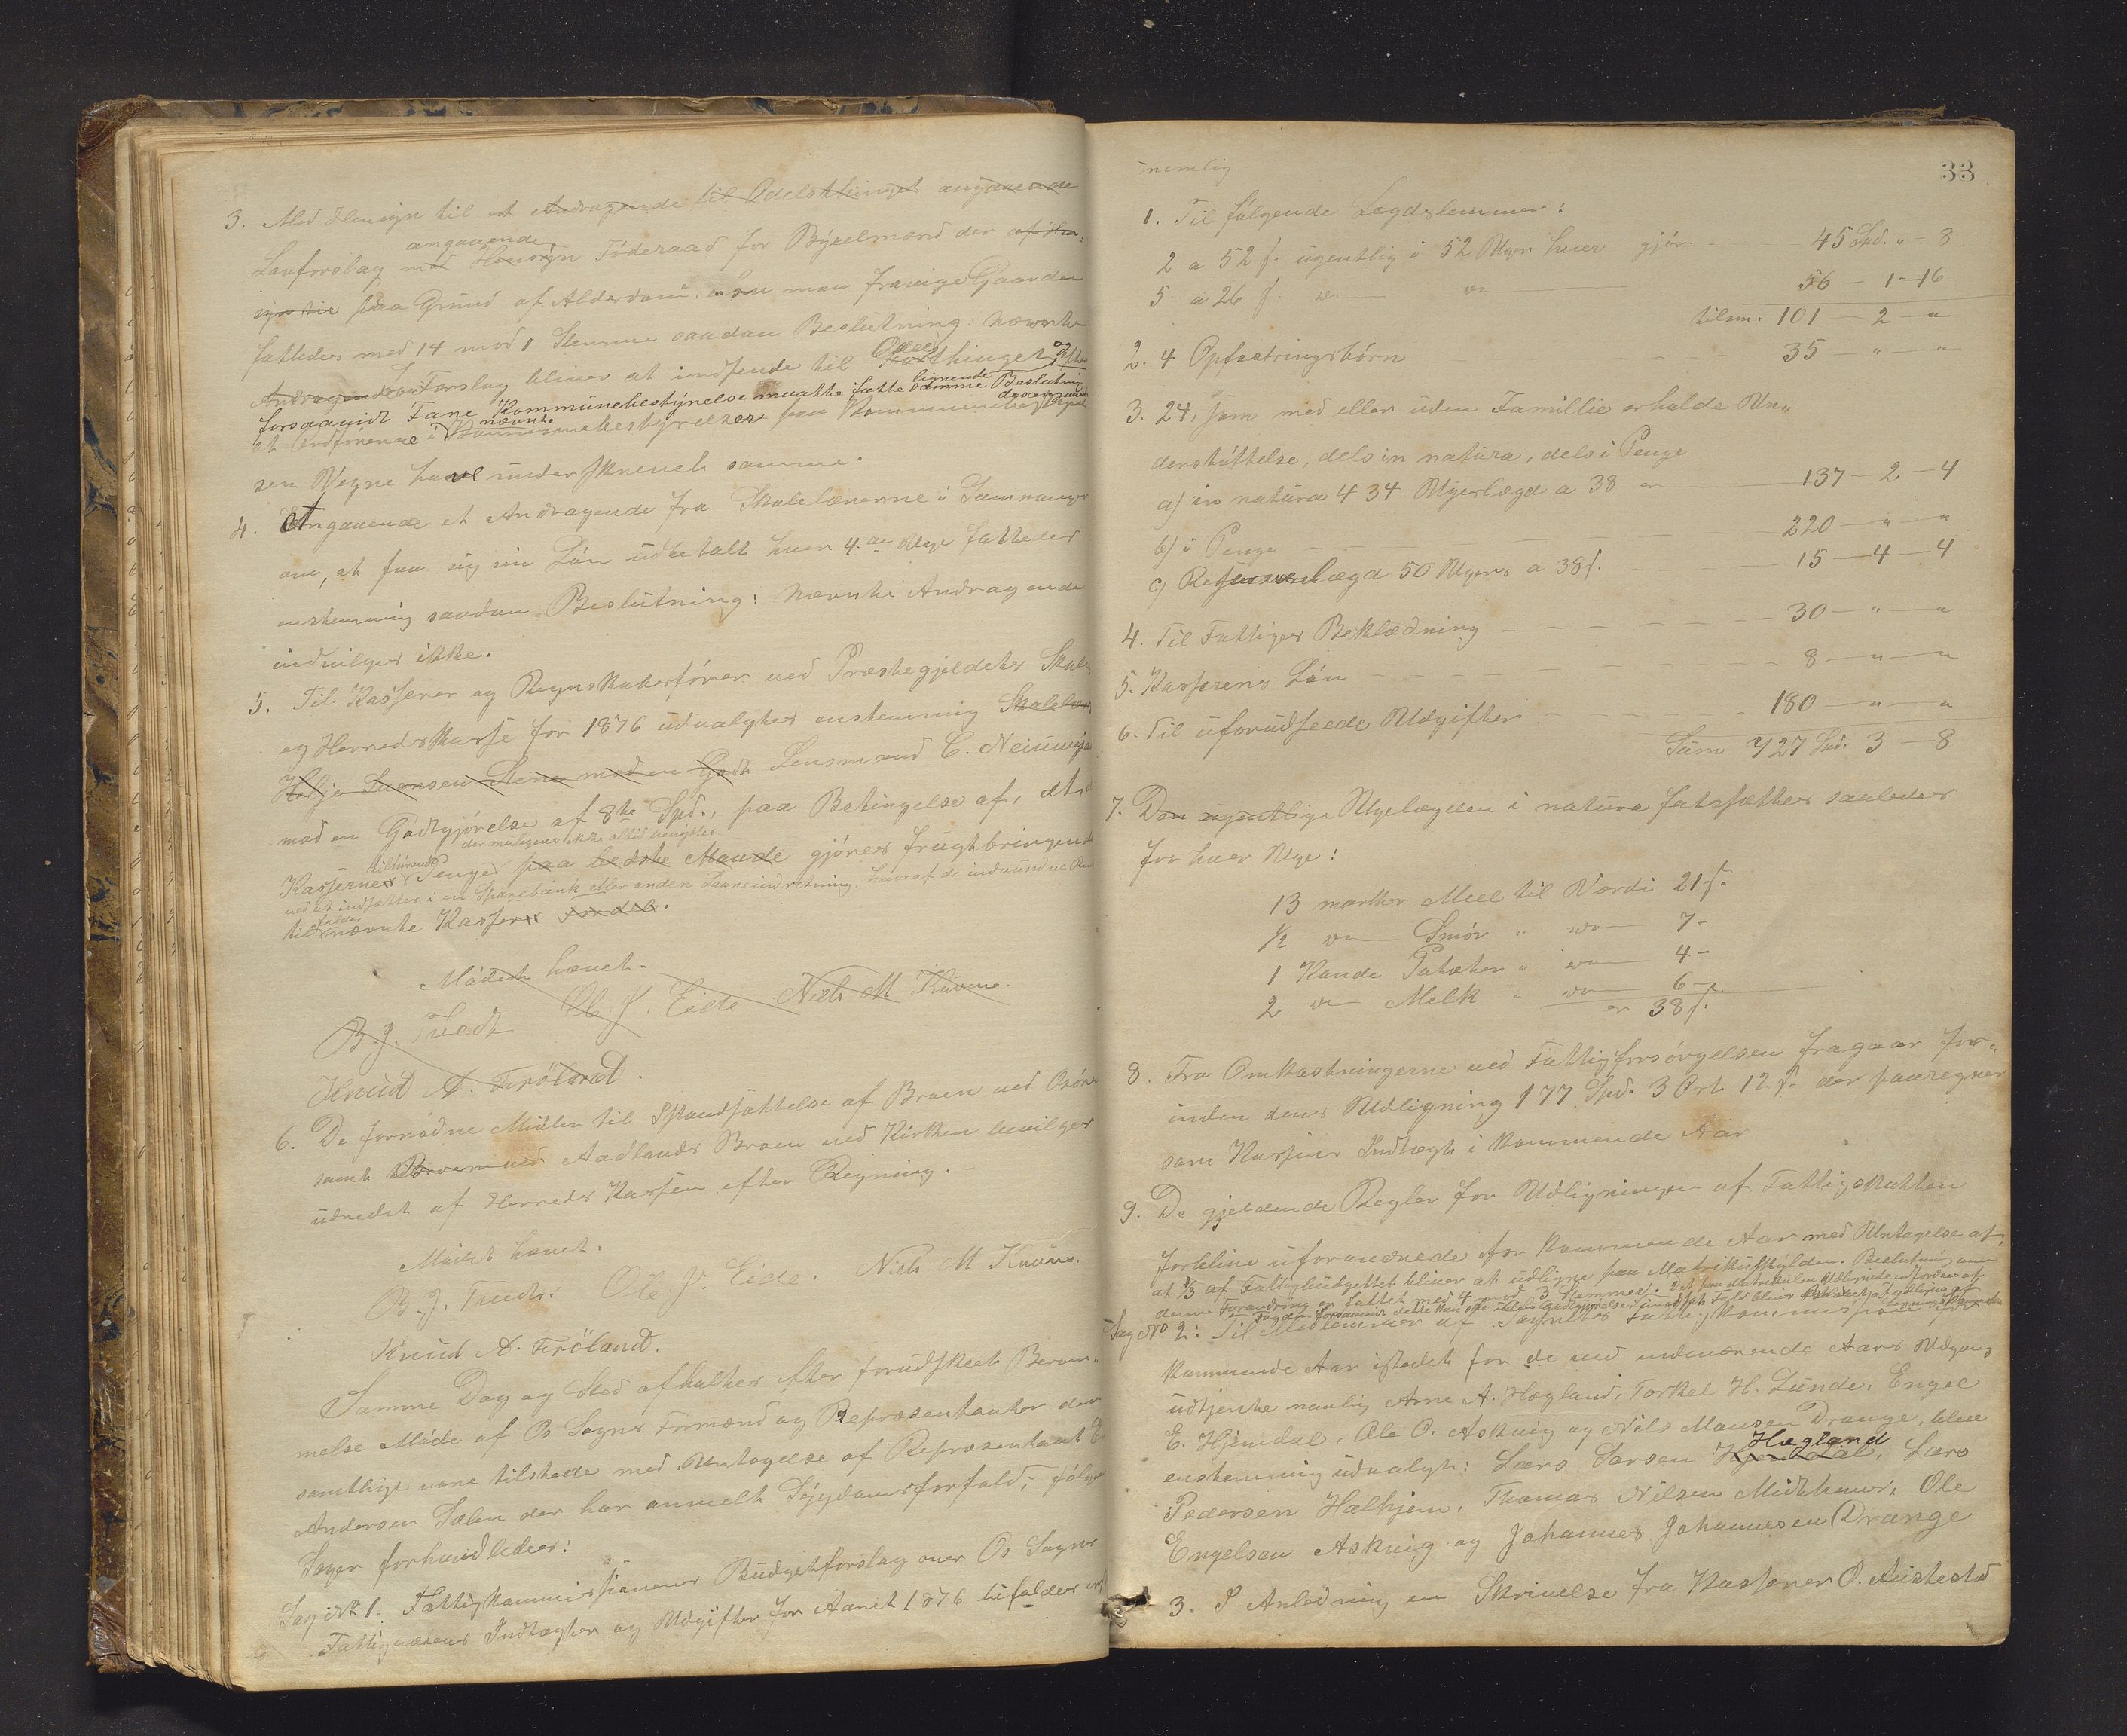 3. Med Hensyn til et Andragende til Odelsthinget angaaende
angaaende
Lovforslag med Hensyn Föderaad for Böxelmænd der af Hen-
syn til paa Grund af Alderdom, maa fravige Gaarden
fattedes med 14 mod 1 Stemme saadan Beslutning: Nævnte
Andragende Forslag bliver at indsende til Odelsthinget, og
forsaavidt Fane Kommunebestyrelse maatte fatte lignende samme Beslutning
at Ordförerne i nævnte Kommunebestyrelser paa Kommunebestyrel-
sen Vegne have underskrevet samme.
4. Angaaende et Andragende fra Skolelærerne i Samnanger
om, at faa sig sin Lön udbetalt hver 4de Uge fattedes
enstemmig saadan Beslutning: Nævnte Andragende
indvilges ikke.
5. Til Kasserer og Regnskabsförer ved Præstegjeldets Skole
og Herredskasse for 1876 udvalgtes enstemmig Skolelærer
Helje Svensen Stene mod en Godt Lensmand C. Neiumejer
mod en Godtgjörelse af 8te Spd., paa Betingelse af, at
tilhörende der muligens ikke altid benyttes
Kassernes Penge paa bedste Maade gjöres frugtbringende
ved at indsættes i en Sparebank eller anden Laaneindretning, hvoraf de indvundne Ren
tilfalder nævnte Kasser Fordel.
Mödet hævet.
B. J. Tuedt Ole J. Eide Niels M. Kuven.
Knud A. Fröland.
6. De fornödne Midler til Istandsættelse af Broen ved Osören
samt Broen ved Aadlands Broen ved Kirken bevilges
udredet af Herreds Kassen efter Regning. -
Mödet hævet.
B. J. Tuedt. Ole. J. Eide. Niels M Kuven.
Knud A. Fröland.
Samme Dag og Sted afholdtes efter forudskeet Beram-
melse Möde af Os Sogns Formænd og Repræsentanter der
samtlige vare tilstede med Undtagelse af Repræsentant
Andersen Lælen der har anmelt Sygdomsforfald; fölge
Sager forhandledes:
Sag No 1. Fattigkommissionens Budgetforslag over Os Sogns
Fattigvæsens Indtægter og Udgifter for Aaret 1876 bifaldes
33
nemlig
1. Til fölgende Lægdslemmer:
2 a 52 s. ugentlig i 52 Uger hver gjör - 45 Spd. " - 8
5 a 26 s. do do 56 - 1 - 16
tilsm. 101 - 2 - "
2. 4 Opfostringsbörn - 35 - " - "
3. 24, som med eller uden Famillie erholde Un-
derstöttelse, dels in natura, dels i Penge
a) in natura 434 Ugerslægd a 38 er 137 - 2 - 4
b) i Penge 220 - " - "
c) Reserve lægd 50 Ugers a 38 s. 15 - 4 - 4
4. Til Fattiges Beklædning 30 - " - "
5. Kasserens Lön 8 - " - "
6. Til uforudseede Udgifter 180 - " - "
Sum 727 Spd. 3 - 8
7. Den ugentlige Ugelægden i natura fatsættes saaledes
for hver Uge:
13 marker Meel til Værdi 21 s.
1/2 do Smör " do 7 -
1 Kande Poteter " do 4 -
2 do Melk " do 6 -
er 38 s.
8. Fra Omkostningerne ved Fattigforsörgelsen fragaar for-
inden dens Udligning 177 Spd. 3 Ort 12 s. der paaregnes
som Kassens Indtægt i kommende Aar
9. De gjeldende Regler for Udligningen af Fattigskatten
forblive uforandrede for kommende Aar med Undtagelse af,
at 1/3 af Fattigbudgettet bliver at udligne paa Matrikulskylden. Beslutning om
denne Forandring er fattet med 4 mod 3 Stemmer.
Sag No 2: Til Medlemmer af Sognets Fattigkommission for
kommende Aar istedet for de ved indeværende Aars Udgang
udtjente nemlig Arne A. Hægland, Torkel H. Lunde, Engel
E. Hjemdal, Ole O. Askvig og Nils Monsen Drange, blev
enstemmig udvalgt: Lars Larsen Hjemdal Hægland, Lars
Pedersen Halhjem, Thomas Nilsen Midthuus, Ole
Engelsen Askvig og Johannes Johannesen Drange
3. I Anledning en Skrivelse fra Kasserer O. Austestad